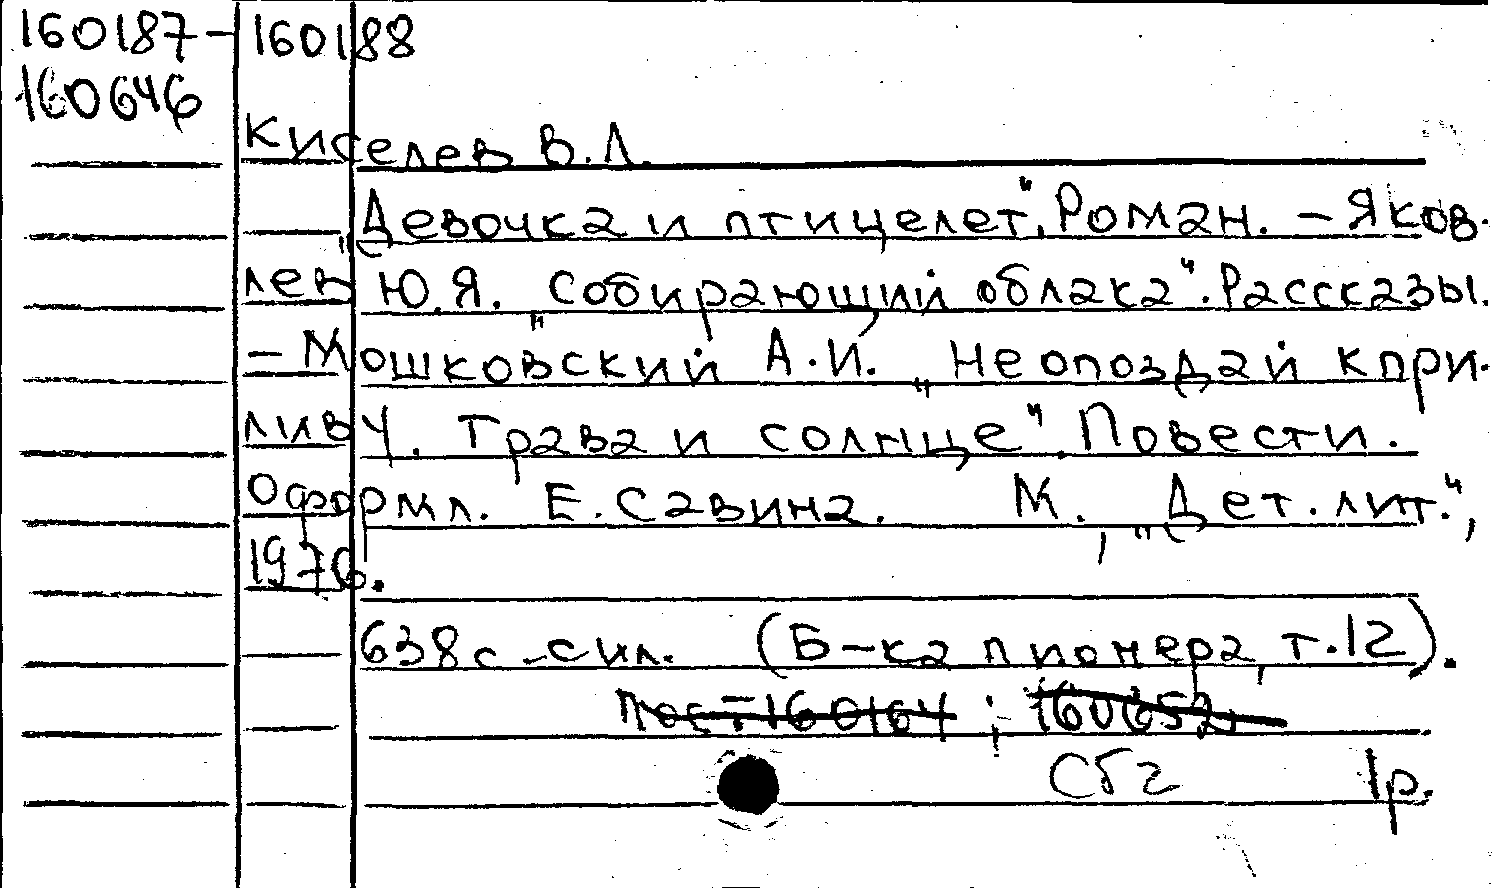 160187-160188
160646
Киселев В.Л.
"Девочка и птицелет". Роман. - Яков-
лев Ю.Я. "Собирающий облака". Рассказы.
- Мошковский А.И. "Не опоздай к при-
ливу. Трава и солнце". Повести.
Оформл. Е. Савина. М., "Дет. лит.",
1976.
638 с. с ил. (Б-ка пионера, т.12).
Пост-160164; 160652,
1р.